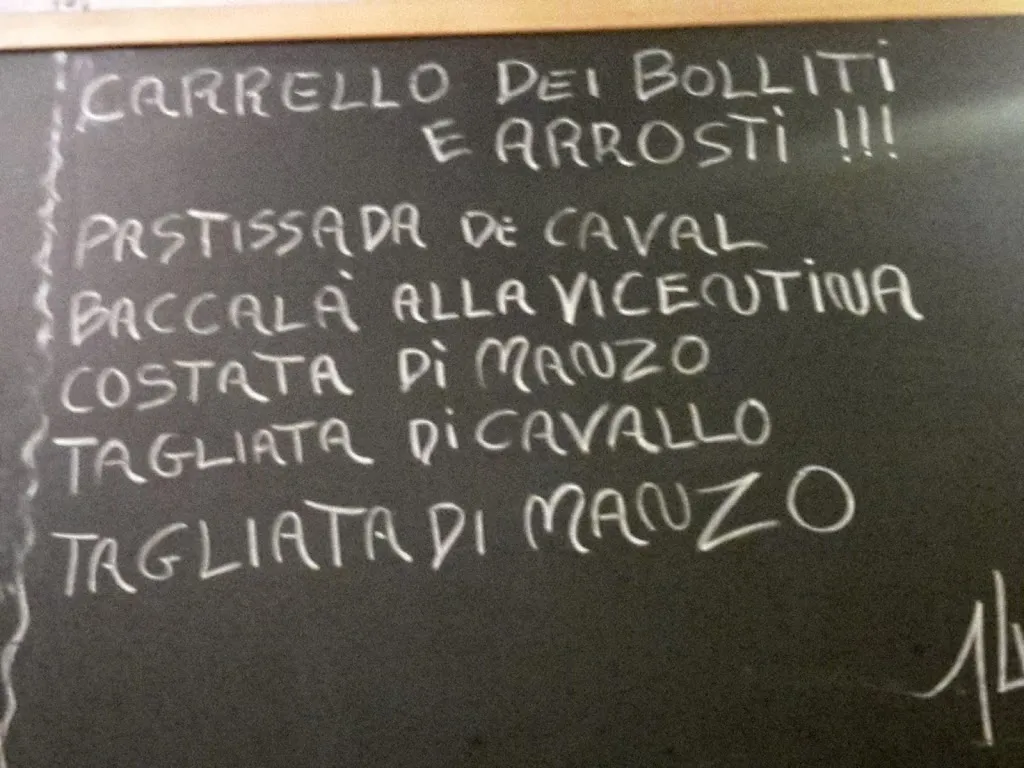 CARRELLO DEI BOLLITI
E ARROSTI !!!
PASTISSADA DE CAVAL
BACCALÀ ALLA VICENTINA
COSTATA Di MANZO
TAGLIATA Di CAVALLO
TAGLIATA DI MANZO